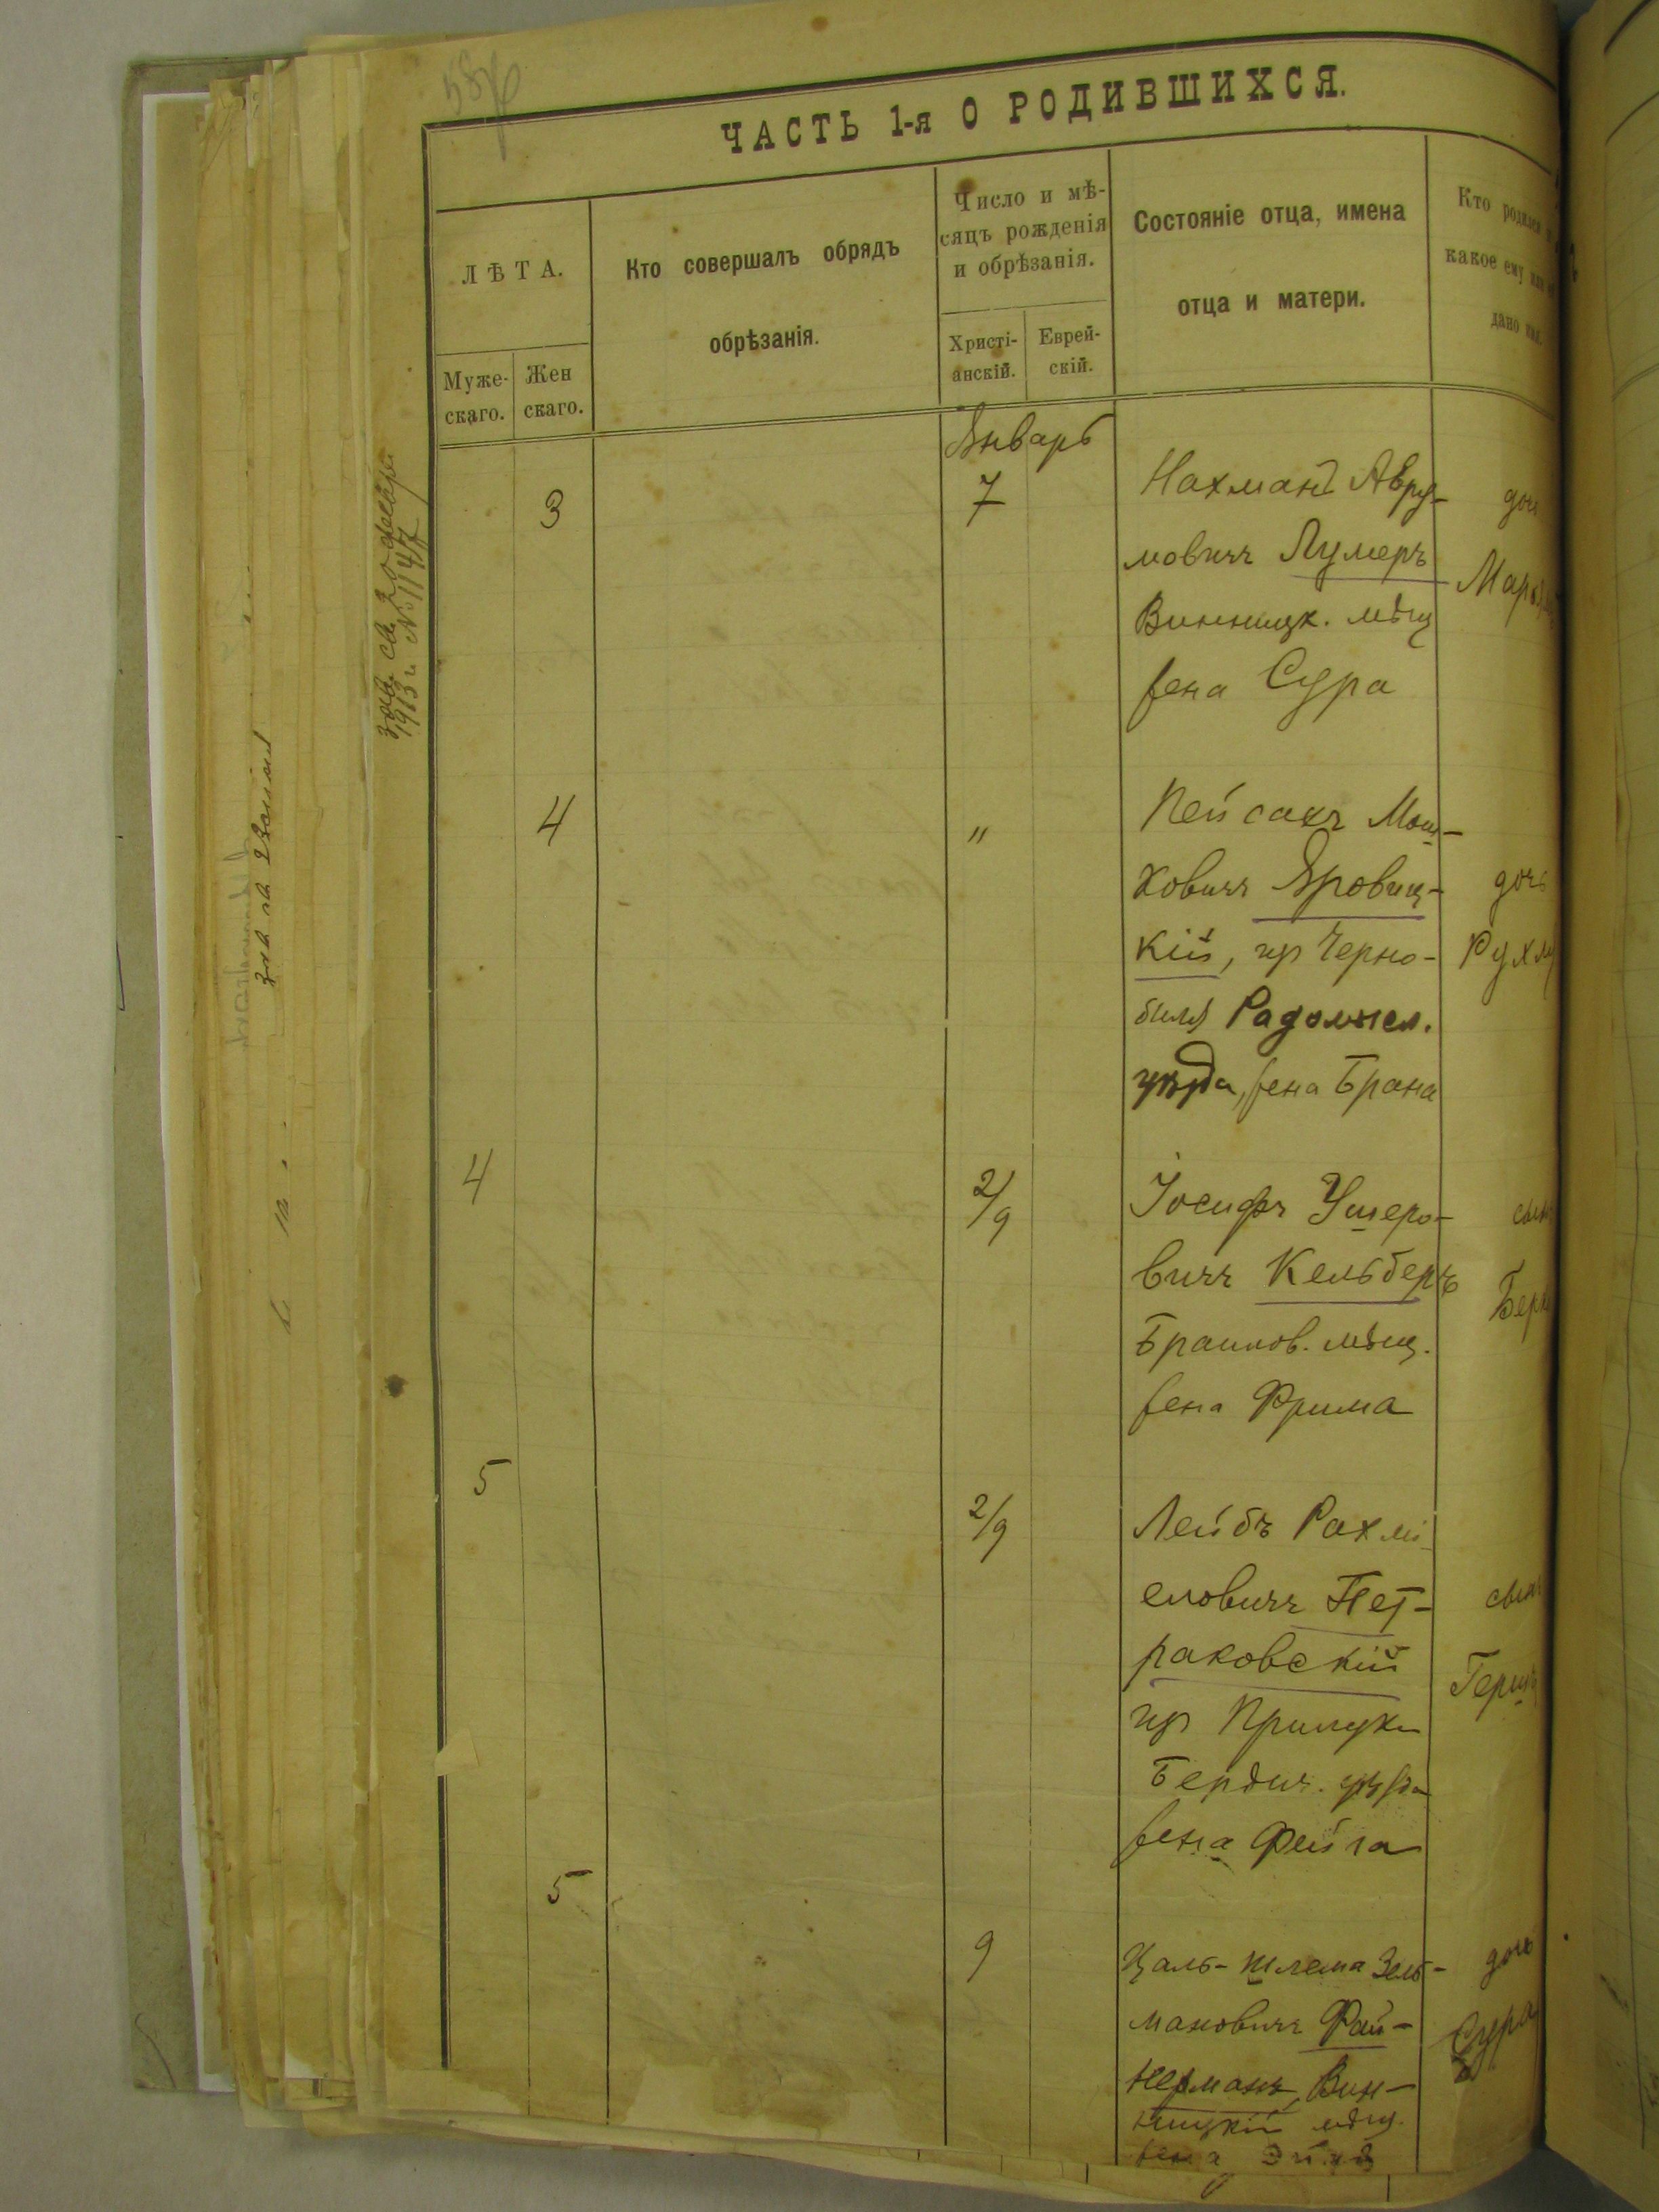 ЧАСТЬ 1-я О РОДИВШИХСЯ.
ЛѢТА.
Муже-
скаго.
Жен
скаго.
Кто совершалъ обрядъ
обрѣзанія.
Число и мѣ-
сяцъ рожденія
и обрѣзанія.
Христі-
анскій.
Еврей-
скій.
Состояніе отца, имена
отца и матери.
Кто родился
какое ему или
дано
Январь
3
7
Нахманъ Авру-
мовичъ Лумеръ
Винницк. мѣщ
жена Сура
дочь
1913 г. № 1147
4
"
Пейсахъ Мош-
ковичъ Яровиц-
кій, изъ Черно-
биля Радомысл.
уѣзда, жена Брана
дочь
Рухл
4
2/9
Іосифъ Ушеро-
вичъ Кельберъ
Браилов. мѣщ.
жена Фрима
сынъ
Берк
5
2/9
Лейбъ Рахми
еловичъ Пет-
раковскій
изъ Прилуки
Бердич. уѣзда
жена Фейга
сынъ
Герш
5
9
Цаль-Шлема Зель-
мановичъ Фай-
нерманъ, Вин-
ницкій мѣщ.
жена
дочь
Сура